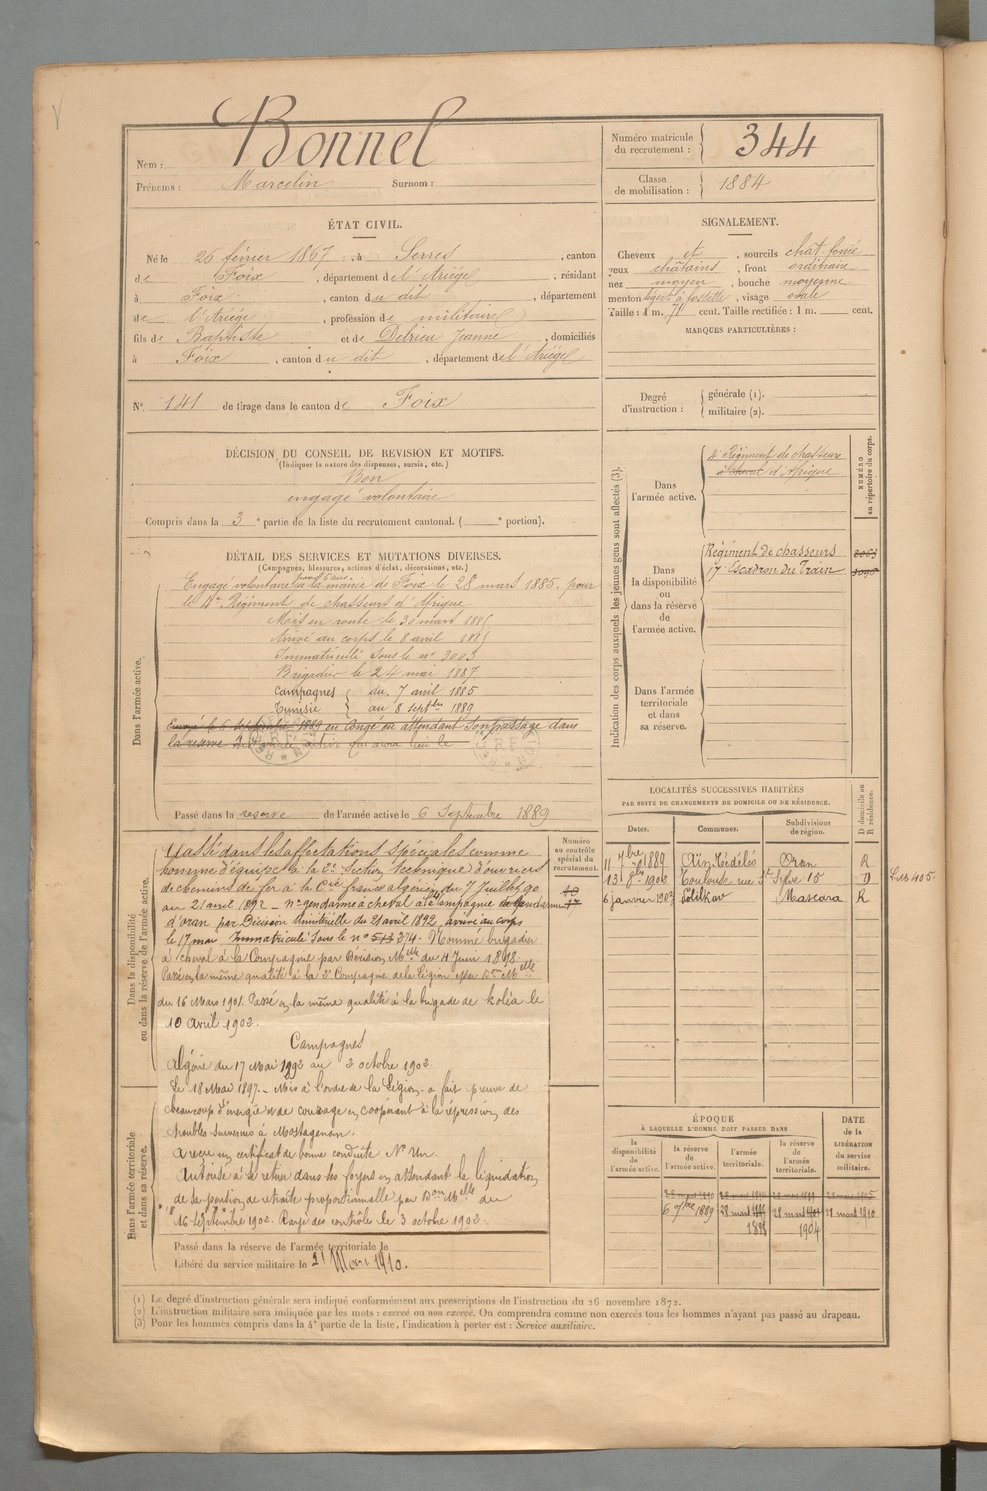 Nom : Bonnel
Prénoms : Marcelin Surnom :
Numéro matricule du recrutement : 344
Classe de mobilisation : 1884
ÉTAT CIVIL.
Né le 26 février 1867, à Serres, canton
de Foix, département de l'Ariége, résidant
à Foix, canton du dit, département
de l'Ariége, profession de militaire
fils de Baptiste et de Delrieu Jeanne, domiciliés
à Foix, canton du dit, département de l'Ariége
N° 141 de tirage dans le canton de Foix
SIGNALEMENT.
Cheveux et, sourcils chat foncé
yeux chatains, front ordinaire
nez moyen, bouche moyenne
menton à fossette, visage ovale
Taille : 1 m. 71 cent. Taille rectifiée : 1 m. cent.
MARQUES PARTICULIÈRES :
Degré d'instruction : générale (1).
militaire (2).
DÉCISION DU CONSEIL DE REVISION ET MOTIFS.
(Indiquer la nature des dispenses, sursis, etc.)
Bon
engagé volontaire
Compris dans la 3e partie de la liste du recrutement cantonal. ( e portion).
DÉTAIL DES SERVICES ET MUTATIONS DIVERSES.
(Campagnes, blessures, actions d'éclat, décorations, etc.)
Dans l'armée active.
Engagé volontaire pour 5 ans à la mairie de Foix le 28 mars 1885. pour
le 4e Régiment de chasseurs d'Afrique
Mis en route le 30 mars 1885
Arrivé au corps le 8 avril 1885
Immatriculé sous le n° 3003
Brigadier le 24 mai 1887
Campagnes du 7 avril 1885
Tunisie au 8 septbre 1889
Envoyé le 6 septembre 1889 en congé en attendant son passage dans
la réserve de l'armée active qui aura lieu le
Passé dans la reserve de l'armée active le 6 Septembre 1889
Indication des corps auxquels les jeunes gens sont affectés (3).
NUMÉRO au répertoire du corps.
Dans l'armée active.
4e Régiment de chasseurs
à cheval d'Afrique
Dans la disponibilité ou dans la réserve de l'armée active.
Régiment de chasseurs
17e Escadron du Train
Dans l'armée territoriale et dans sa réserve.
LOCALITÉS SUCCESSIVES HABITÉES
PAR SUITE DE CHANGEMENTS DE DOMICILE OU DE RÉSIDENCE.
Dates. Communes. Subdivisions de région. D domicile ou R résidence.
11 7bre 1889 Oran R
13 8bre 1902 Toulouse rue St Sylve 15 D
6 janvier 1903 Palikao Mascara R
Dans la disponibilité ou dans la réserve de l'armée active.
Numéro au contrôle spécial du recrutement.
Passé dans les affectations spéciales comme
homme d'équipe à la 2e Section technique d'ouvriers
de chemins de fer à la Cie franco algérien du 7 Juillet 90
au 21 avril 1892 – n° gendarme à cheval à la Compagnie de gendarmerie
d'oran par Décision Ministérielle du 21 avril 1892, arrivé au corps
le 17 mai, Immatriculé sous le n° 513 374. Nommé brigadier
à cheval à la Compagnie par Décision Melle du 4 Juin 1898.
Passé en la même qualité à la 2e Compagnie de la Légion par Don Melle
du 16 Mars 1901. Passé en la même qualité à la brigade de Koléa le
10 avril 1902.
Campagnes
Algérie du 17 Mai 1892 au 2 octobre 1902
Le 18 Mai 1897. – Mis à l'ordre de la Légion - a fait preuve de
beaucoup d'énergie et de courage en coopérant à la répression des
troubles survenus à Mostaganem.
A reçu un certificat de bonne conduite N° Un.
Autorisé à se retirer dans ses foyers en attendant la liquidation
de sa pension de retraite proportionnelle par Don Melle du
16 Septembre 1902. Rayé des contrôles le 3 octobre 1902.
Dans l'armée territoriale et dans sa réserve.
Passé dans la réserve de l'armée territoriale le
Libéré du service militaire le 21 Mars 1910.
ÉPOQUE
À LAQUELLE L'HOMME DOIT PASSER DANS
la disponibilité de l'armée active. la réserve de l'armée active. l'armée territoriale. la réserve de l'armée territoriale. DATE de la LIBÉRATION du service militaire.
28 mars 1890
6 7bre 1889 28 mars 28 mars 1901 28 mars 1910
1898 1904
(1) Le degré d'instruction générale sera indiqué conformément aux prescriptions de l'instruction du 26 novembre 1872.
(2) L'instruction militaire sera indiquée par les mots : exercé ou non exercé. On comprendra comme non exercés tous les hommes n'ayant pas passé au drapeau.
(3) Pour les hommes compris dans la 4e partie de la liste, l'indication à porter est : Service auxiliaire.